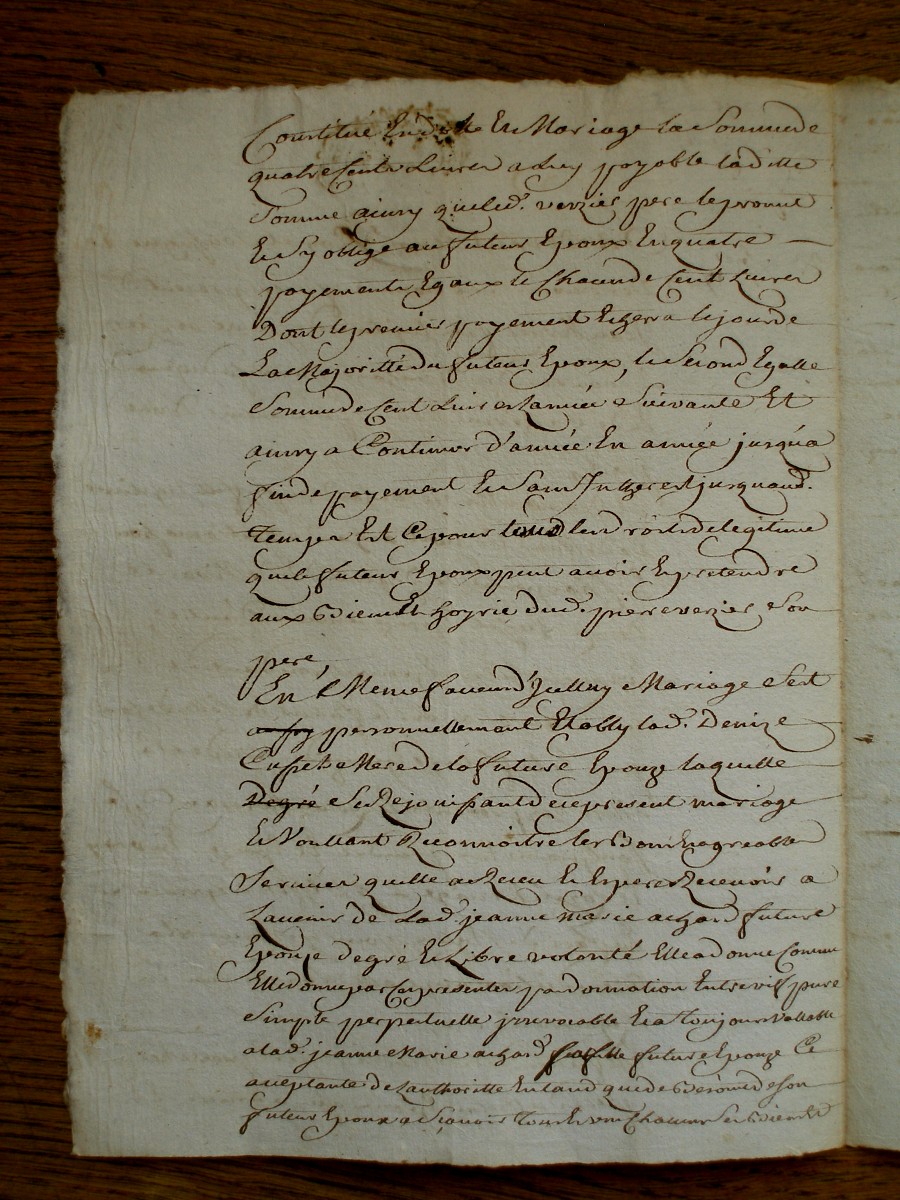 Constitué En dotte En Mariage La Somme de
quatre Cents Livres a luy payable laditte
Somme ainsy que led. verzier pere le promet
Et Sy oblige au futeur Epoux En quatre
payements Egaux de Chacun de Cent Livres
Dont le premier payement Echerra le jour de
La Majoritté du futeur Epoux, le Second Egalle
Somme de Cent Livres L'année Suivante Et
ainsy a Continuer d'année En année jusqu'a
fin de payement Et Sans Interest jusquaud.
temps Et Ce pour tous les droits de legitime
que le futeur Epoux peut avoir Et pretendre
aux Biens Et hoyrie dud. pierre verzier Son
pere
En Meme faveur d'Icelluy Mariage S'est
personnellement Etably lad. Denize
Mere de la future Epouze laquelle
Degré Se Rejouissant de ce present mariage
Et Voullant Reconnoitre les Bons Et agreables
Services quelle a Receu Et Espere Recevoir a
Lavenir de Lad. jeanne marie achard future
Epouse de gré Et Libre volonté Elle a donné Comme
Elle donne par Ces presentes par donnation Entre vifs pure
Simple perpetuelle jrrevocable Et a toujours Vallable
a lad. jeanne Marie achard future Epouze Ce
aceptante de Lauthoritté En tand que de Besoin de Son
futeur Epoux a Sçavoir tous Et un Chacun Ses Biens Et